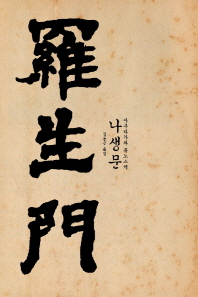 羅生門
아쿠타가와 류노스케
나생문